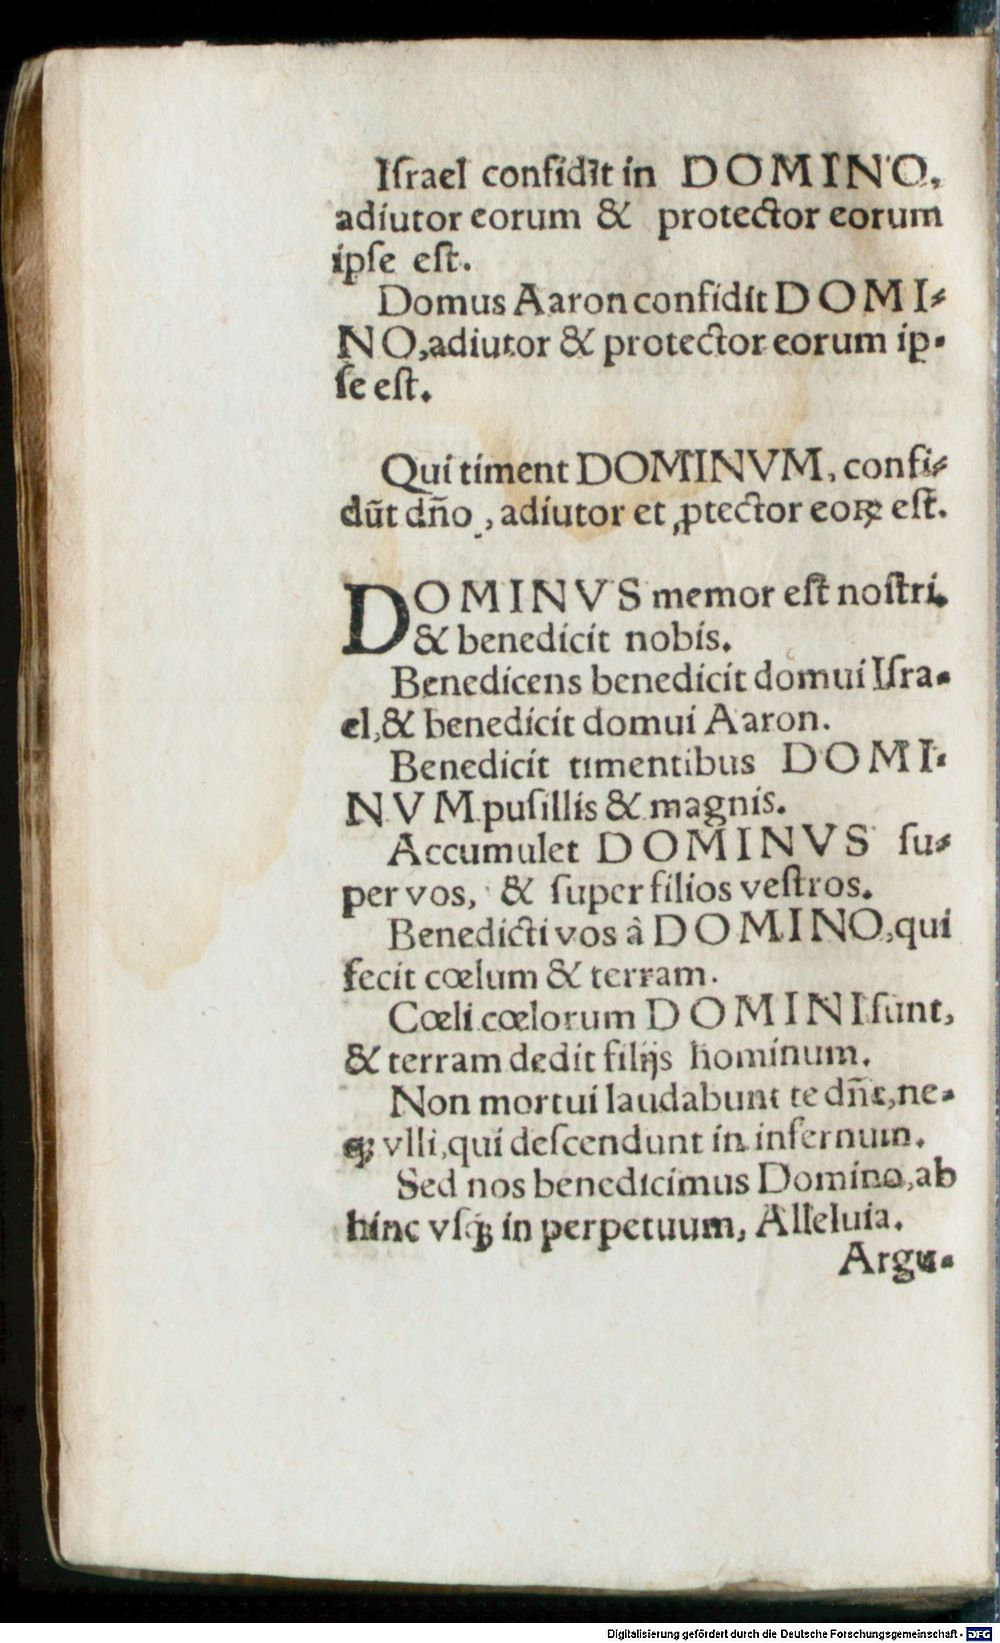 Iſrael confidit in DOMINO,
adiutor eorum & protector eorum
ipſe eſt.
Domus Aaron confidit DOMI⸗
NO, adiutor & protector eorum ip⸗
ſe eſt.
Qui timent DOMINVM, confi⸗
dũt dño, adiutor et ꝓtector eoꝝ eſt.
DOMINVS memor eſt noſtri,
& benedicit nobis.
Benedicens benedicit domui Iſra⸗
el, & benedicit domui Aaron.
Benedicit timentibus DOMI⸗
NVM puſillis & magnis.
Accumulet DOMINVS ſu⸗
per vos, & ſuper filios veſtros.
Benedicti vos à DOMINO, qui
fecit cœlum & terram.
Cœli cœlorum DOMINI ſunt,
& terram dedit filijs hominum.
Non mortui laudabunt te dñe, ne⸗
qꝫ vlli, qui deſcendunt in infernum.
Sed nos benedicimus Domino, ab
hinc vſqꝫ in perpetuum, Alleluia.
Argu⸗
Digitalisierung gefördert durch die Deutsche Forschungsgemeinschaft - DFG